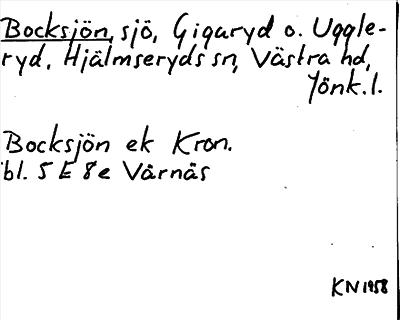 Bocksjön, sjö, Gigaryd o. Uggle-
ryd, Hjälmseryds sn, Västra hd,
Jönk. l.
Bocksjön ek Kron.
bl. 5 E 8 e Värnäs
KN 1958